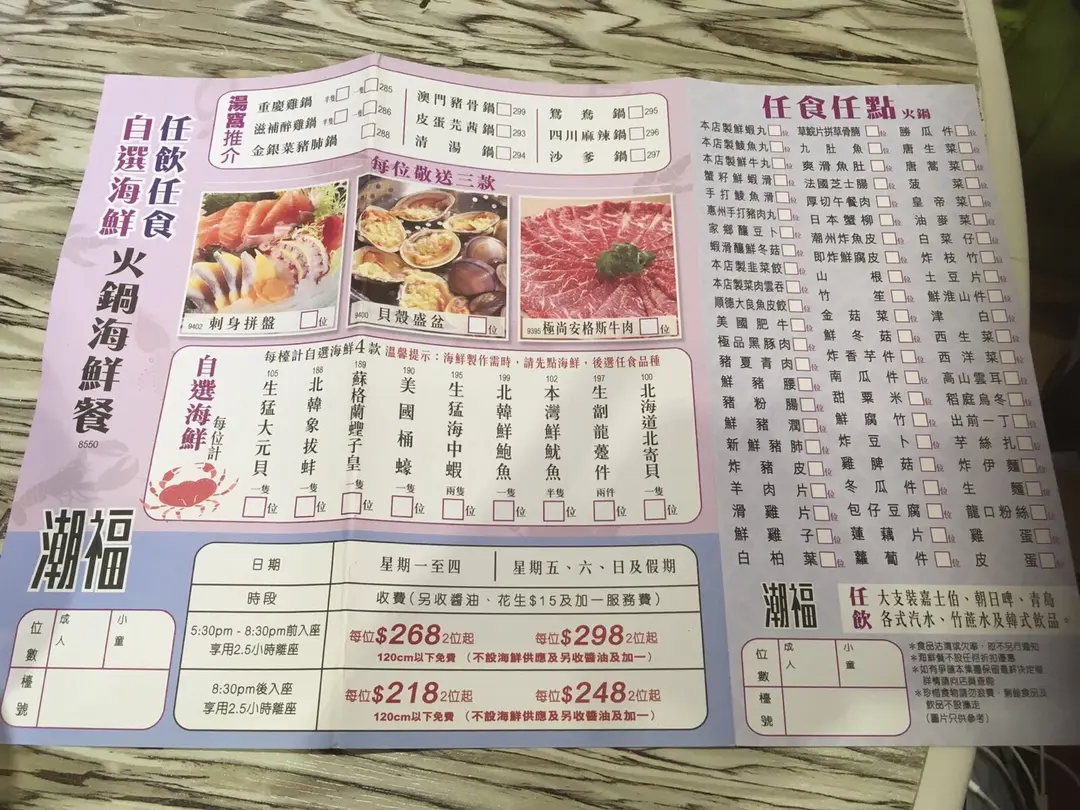 任飲任食
自選海鮮
火鍋海鮮餐
8550
潮福
湯窩推介
重慶雞鍋 半隻 一隻 285
滋補醉雞鍋 半隻 一隻 286
金銀菜豬肺鍋 288
澳門豬骨鍋 299
皮蛋芫茜鍋 293
清湯鍋 294
鴛鴦鍋 295
四川麻辣鍋 296
沙爹鍋 297
每位敬送三款
9402 刺身拼盤 位
9400 貝殼盛盆 位
9395 極尚安格斯牛肉 位
自選海鮮 每位計
每檯計自選海鮮4款 溫馨提示：海鮮製作需時，請先點海鮮，後選任食品種
105 生猛大元貝 一隻 位
188 北韓象拔蚌 一隻 位
189 蘇格蘭蟶子皇 一隻 位
190 美國桶蠔 一隻 位
195 生猛海中蝦 兩隻 位
199 北韓鮮鮑魚 一隻 位
102 本灣鮮魷魚 半隻 位
197 生劏龍躉件 兩件 位
100 北海道北寄貝 一隻 位
日期 星期一至四 星期五、六、日及假期
時段 收費(另收醬油、花生$15及加一服務費)
5:30pm - 8:30pm前入座
享用2.5小時離座
每位$268 2位起 每位$298 2位起
120cm以下免費 (不設海鮮供應及另收醬油及加一)
8:30pm後入座
享用2.5小時離座
每位$218 2位起 每位$248 2位起
120cm以下免費 (不設海鮮供應及另收醬油及加一)
位數 成人 小童
檯號
任食任點 火鍋
本店製鮮蝦丸 位
本店製鯪魚丸 位
本店製鮮牛丸 位
蟹籽鮮蝦滑 位
手打鯪魚滑 位
惠州手打豬肉丸 位
家鄉釀豆卜 位
蝦滑釀鮮冬菇 位
本店製韭菜餃 位
本店製菜肉雲吞 位
順德大良魚皮餃 位
美國肥牛 位
極品黑豚肉 位
豬夏青肉 位
鮮豬腰 位
豬粉腸 位
鮮豬潤 位
新鮮豬肺 位
炸豬皮 位
羊肉片 位
滑雞片 位
鮮雞子 位
白柏葉 位
草鯇片拼草骨腩 位
九肚魚 位
爽滑魚肚 位
法國芝士腸 位
厚切午餐肉 位
日本蟹柳 位
潮州炸魚皮 位
即炸鮮腐皮 位
山根 位
竹笙 位
金菇菜 位
鮮冬菇 位
炸香芋件 位
南瓜件 位
甜粟米 位
鮮腐竹 位
炸豆卜 位
雞脾菇 位
冬瓜件 位
包仔豆腐 位
蓮藕片 位
蘿蔔件 位
勝瓜件 位
唐生菜 位
唐蒿菜 位
菠菜 位
皇帝菜 位
油麥菜 位
白菜仔 位
炸枝竹 位
土豆片 位
鮮淮山件 位
津白 位
西生菜 位
西洋菜 位
高山雲耳 位
稻庭烏冬 位
出前一丁 位
芋絲扎 位
炸伊麵 位
生麵 位
龍口粉絲 位
雞蛋 位
皮蛋 位
潮福
任飲
大支裝嘉士伯、朝日啤、青島
各式汽水、竹蔗水及韓式飲品。
位數 成人 小童
檯號
*食品沽清或欠奉，恕不另行通知
*海鮮餐不設任何折扣優惠
*如有爭議本集團保留最終決定權
詳情請向店員查詢
*珍惜食物請勿浪費，剩餘食品及
飲品不設攜走
(圖片只供參考)